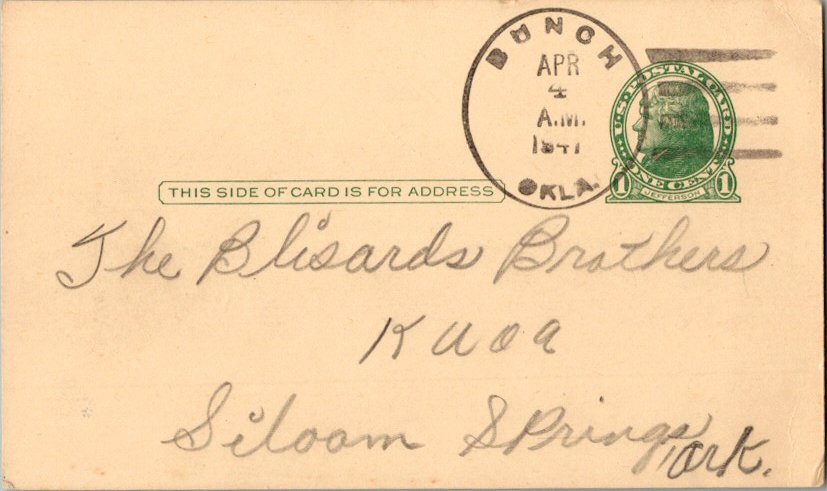 BUNCH
APR
4
A.M.
1947
OKLA.
U.S. POSTAL CARD
ONE CENT
1 JEFFERSON 1
THIS SIDE OF CARD IS FOR ADDRESS
The Blisards Brothers
KUOA
Siloam Springs, Ark.